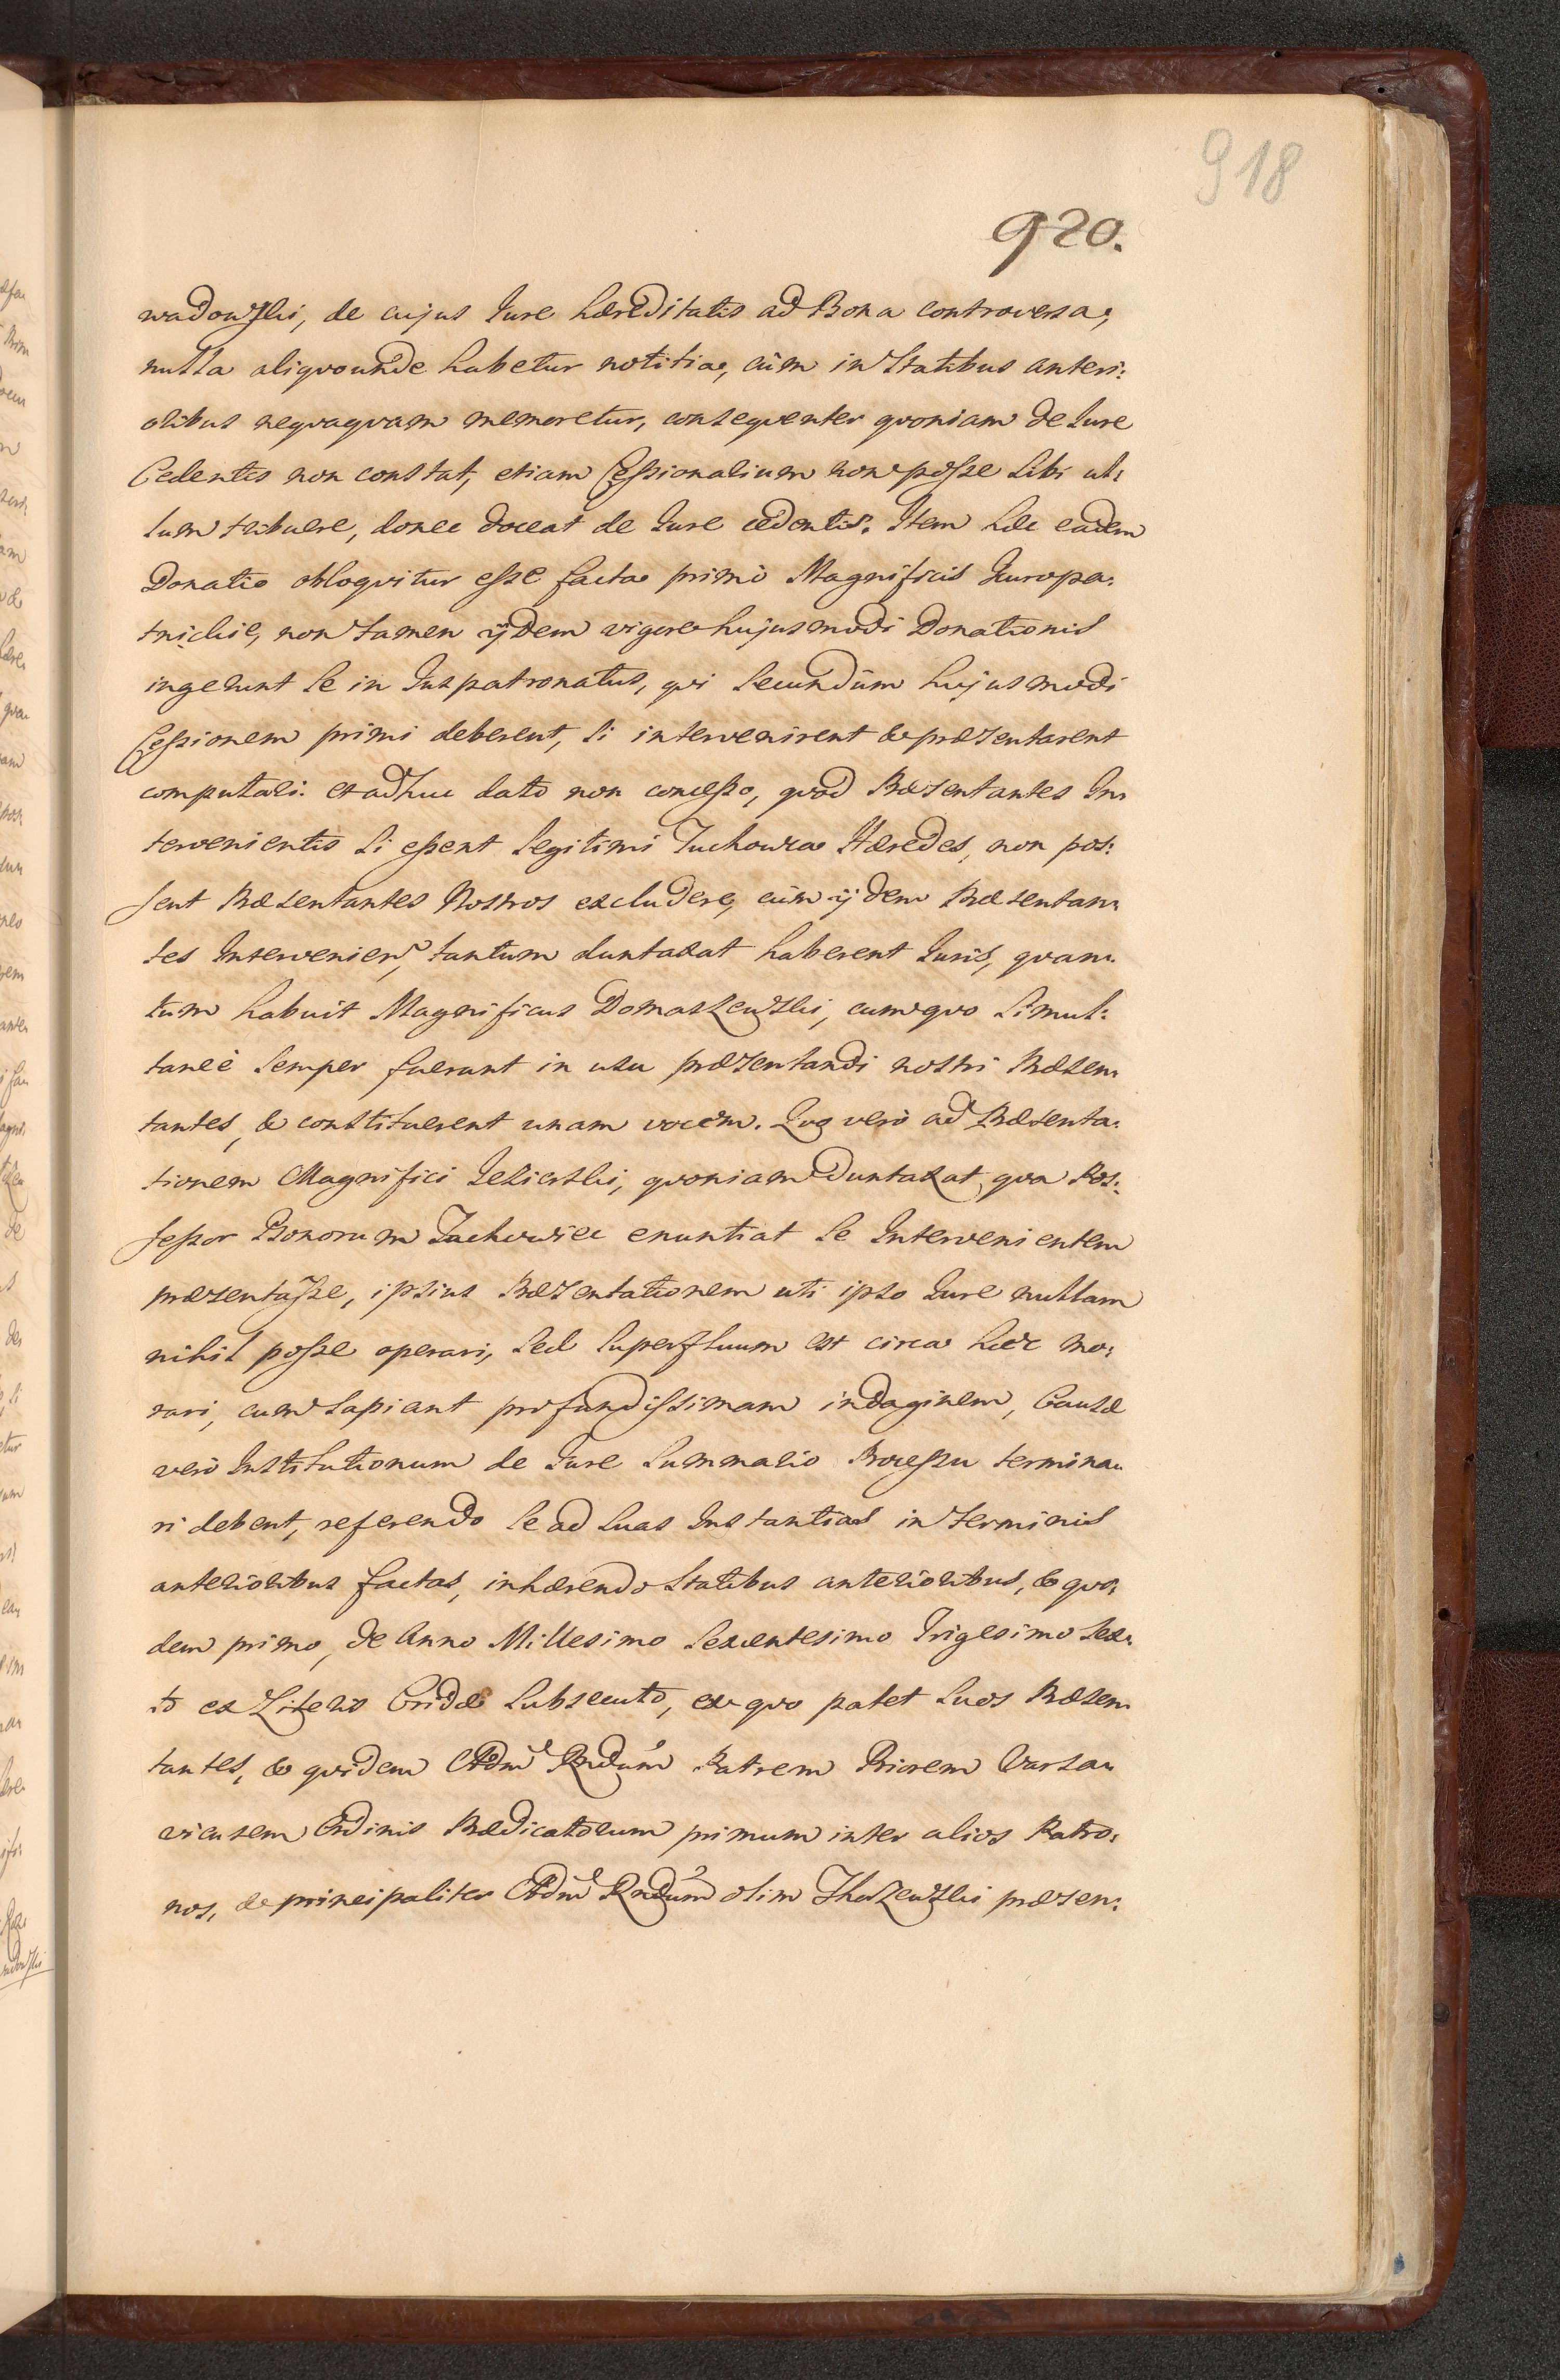 918
920.
wadowski, de cujus Jure hæreditatis ad Bona controversa,
nulla aliqvounde habetur notitia, cùm in Statibus anteri:
oribus neqvaqvam memoretur, conseqventer qvoniam de Jure
Cedentis non constat, etiam Cessionarium non posse Sibi ul:
lum tribuere, donec doceat de Jure cedentis. Item hæc eadem
Donatio obloqvitur esse facta primò Magnificis Juropa:
tnickie, non tamen ijdem vigore hujusmodi Donationis
ingerunt Se in Juspatronatus, qvi Secundùm hujusmodi
Cessionem primi deberent, Si intervenirent & præsentarent
computari: et adhuc dato non concesso, qvod Præsentantes In:
tervenientis Si essent Legitimi Tuchowca Hæredes, non pos:
sent Præsentantes Nostros excludere, cùm ijdem Præsentan:
tes Intervenien, tantum duntaxat haberent Juris, qvan:
tum habuit Magnificus Domaszewski, cum qvo Simul:
taneè Semper fuerunt in usu præsentandi nostri Præsen:
tantes, & constituerent unam vocem. Qvo verò ad Præsenta:
tionem Magnifici Jezierski, qvoniam Duntaxat qva Pos:
sessor Bonorum Tuchowiec enuntiat Se Intervenientem
præsentasse, ipsius Præsentationem uti ipso Jure nullam
nihil posse operari, Sed Superfluum est circa hæc mo:
rari, cum Sapiant profundissimam indaginem, Causæ
verò Institutionum de Jure Summario Processu termina:
ri debent, referendo Se ad Suas Instantias in terminis
anterioribus factas, inhærendo Statibus anterioribus, & qvi:
dem primo, de Anno Millesimo Sexcentesimo Trigesimo Sex:
to ex Literis Cridæ Subsecuto, ex qvo patet Suos Præsen:
tantes, & qvidem Adm Rndum Patrem Priorem Varsa:
viensem Ordinis Prædicatorum primum inter alios Patro:
nos, & principaliter Adm Rndum olim Tharzewski præsen: